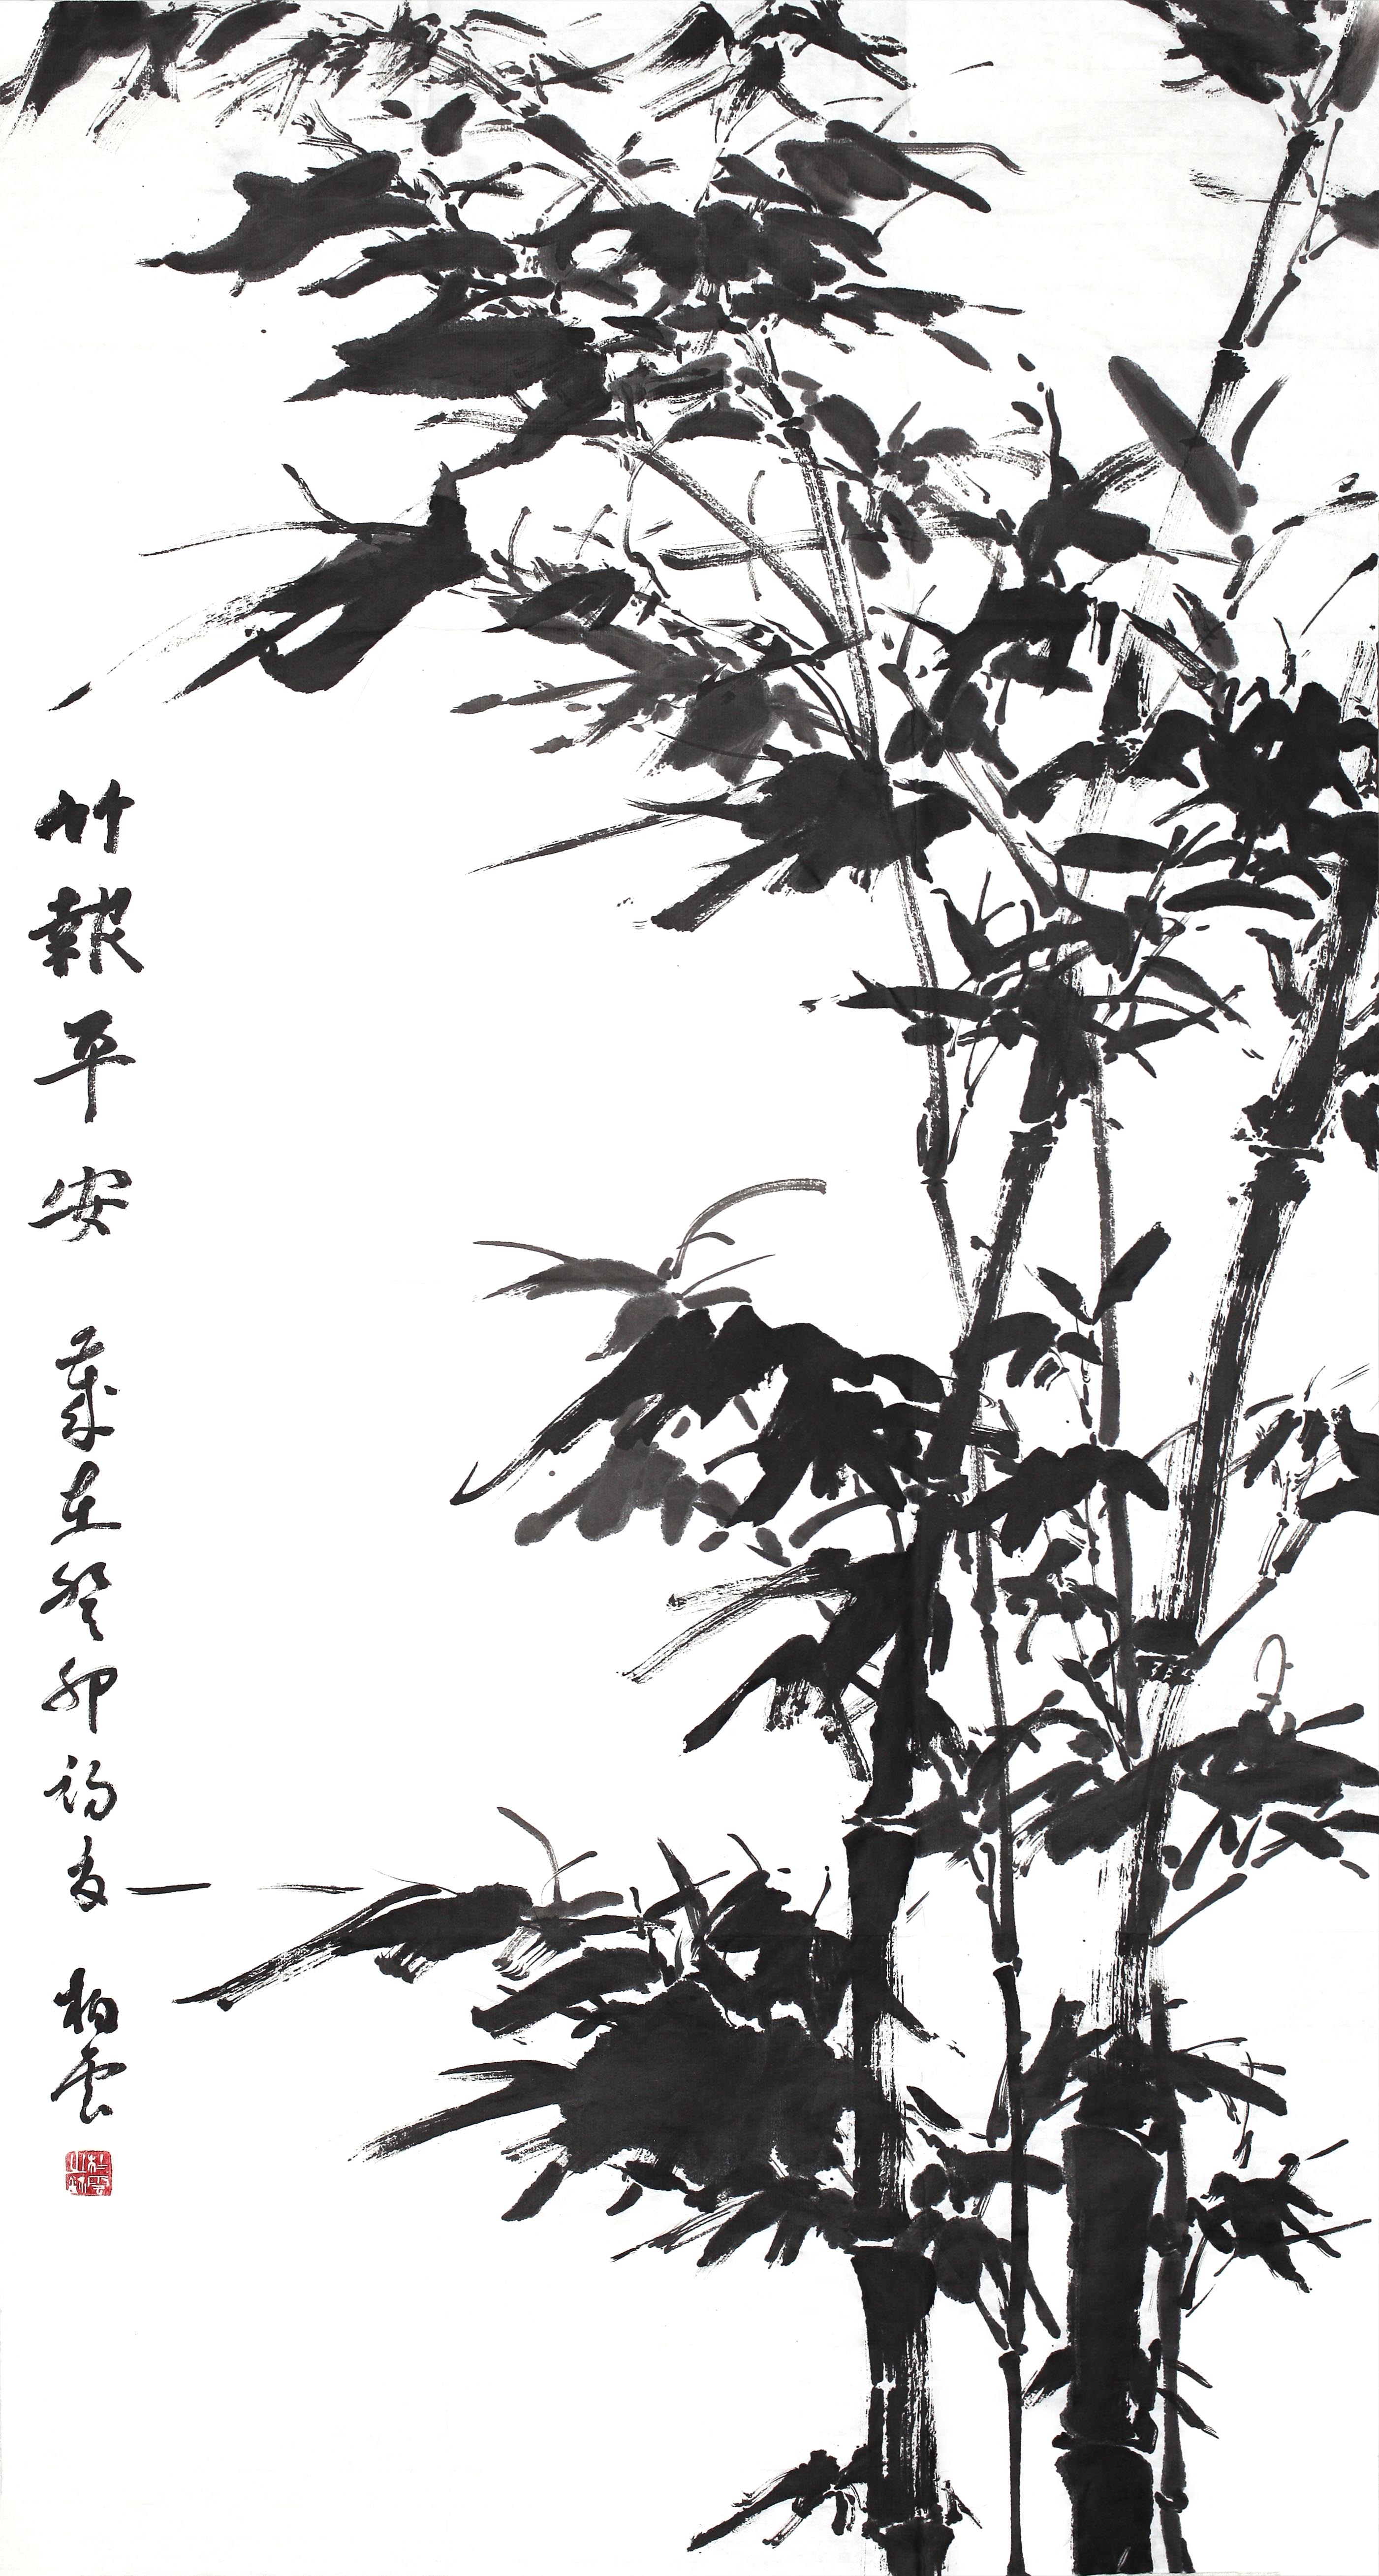 竹報平安 歲在癸卯初夏 柏雲